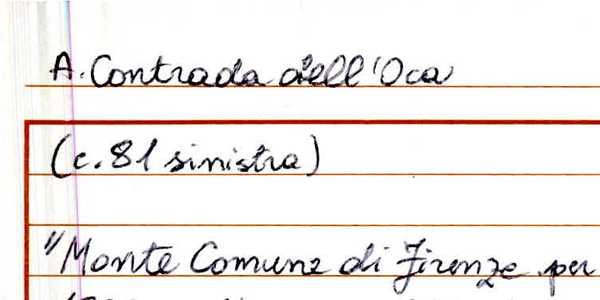 A. Contrada dell'Oca
(c. 81 sinistra)
"Monte Comune di Firenze per